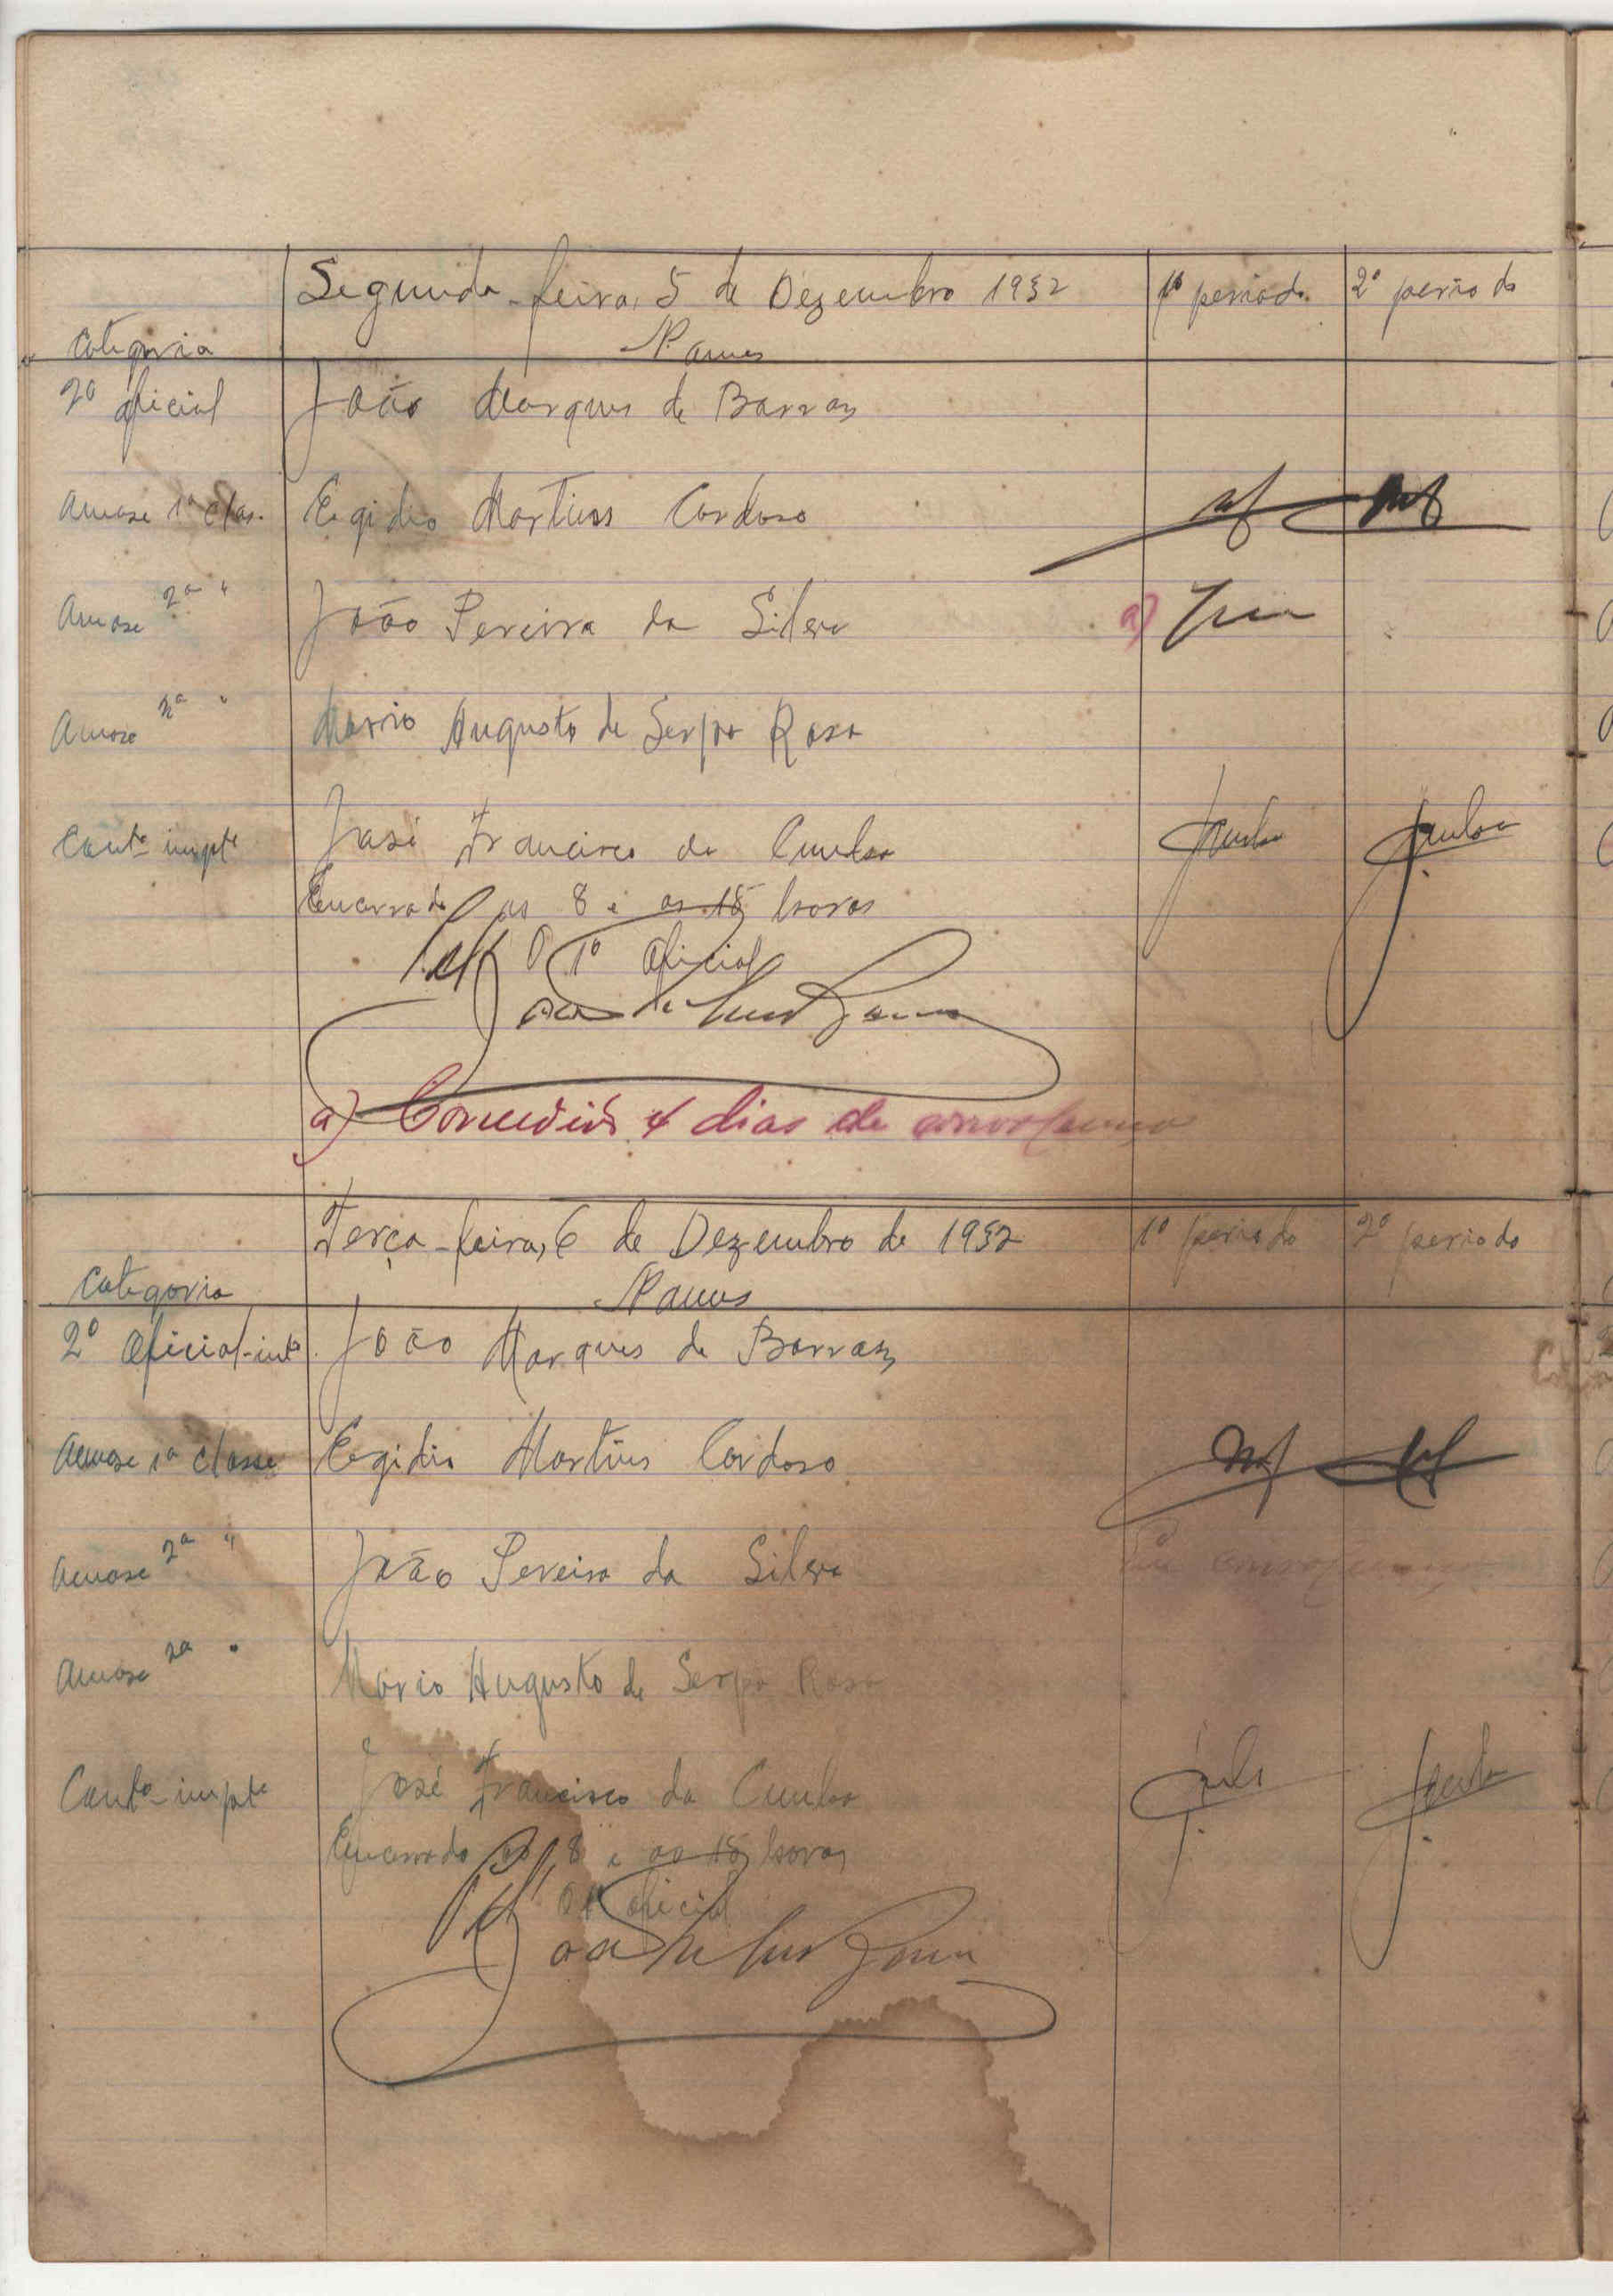 Segunda-feira, 5 de Dezembro 1932 1º periodo 2º periodo
Categoria Nomes
2º oficial João Marques de Barros
Amase 1ª clas. Egidio Martins Cardoso
Amase 2ª " João Pereira da Silva a)
Amase 2ª " Mario Augusto de Serpa Rosa
Contº impte José Francisco da Cunha Jcunha Jcunha
Encerrado as 8 e as 15 horas
O 1º Oficial
a) Concedido 4 dias de
Terça-feira, 6 de Dezembro de 1932 1º periodo 2º periodo
Categoria Nomes
2º Oficial-intº João Marques de Barros
Amase 1ª classe Egidio Martins Cardoso
Amase 2ª " João Pereira da Silva
Amase 2ª " Mário Augusto de Serpa Rosa
Contº impte José Francisco da Cunha Jcunha
Encerrado as 8 e as 15 horas
O 1º oficial